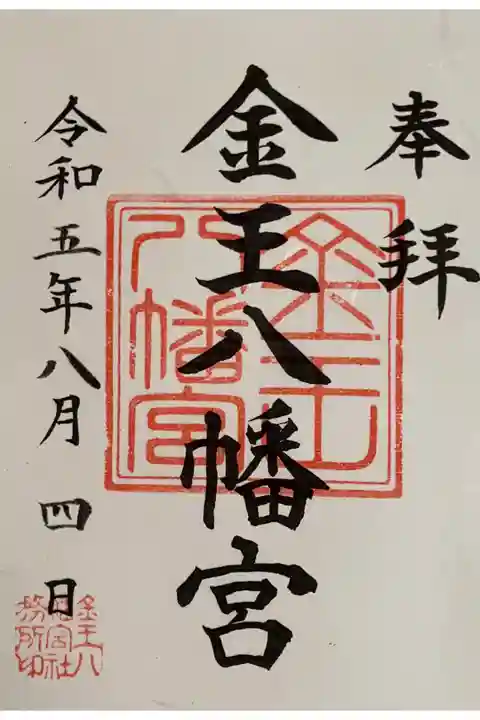 奉拝
金王八幡宮
令和五年八月四日
金王
八幡宮
金王八
幡宮社
務所印